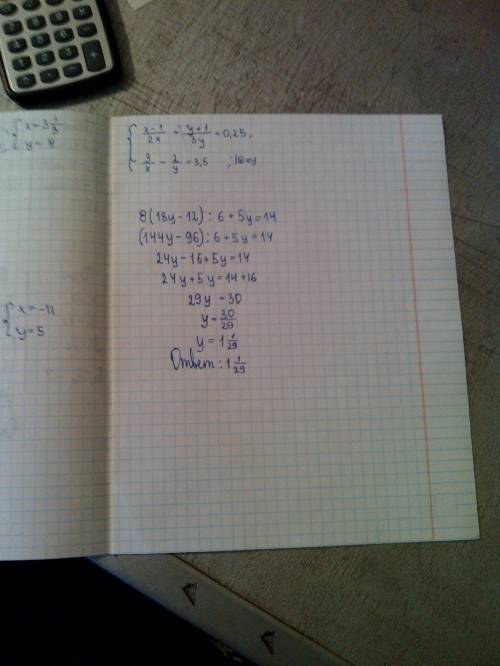 x = 3 1/3
y = 4
x = -11
y = 5
(x-1)/2x - (y+1)/3y = 0,25;
3/x - 2/y = 3,5
8(18y-12):6+5y=14
(144y-96):6+5y=14
24y-16+5y=14
24y+5y=14+16
29y=30
y=30/29
y=1 1/29
Ответ: 1 1/29